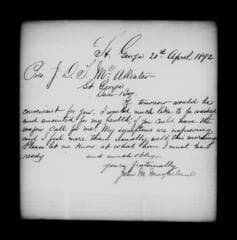 St. George 20th April 1892
J. D. T. McAllister
St George
Dear Bro
If tomorrow would be
convenient for you, I would much like to be washed
and anointed for my health, if you could have the
wagon call for me. My symptoms are improving
and I feel more than usually well this morning
Please let me know at what hour I must be
ready and much oblige
yours fraternally
John M.